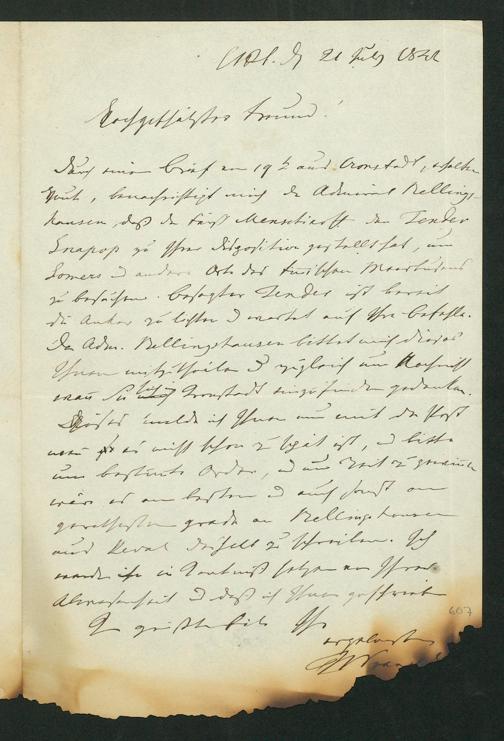 d 21 July
Hochgeschätzter Freund!
Durch einen Brief vom 19t aus Cronstadt, erhalten
heut, benachrichtigt mich der Admiral Bellings-
hausen, daß der Fürst Menschikoff den Tender
Snapop zu Ihrer Disposition gestellt hat, um
Somers u andere Orte des finischen Meerbusens
zu besuchen. Besagter Tender ist bereit
die Anker zu lichten u wartet auf Ihre Befehle.
Der Adm. Bellingshausen bittet mich dieses
Ihnen mitzutheilen u zugleich um Nachricht
wann Sie sich in Cronstadt einzufinden gedenken.
Dieses melde ich Ihnen nun mit der Post
wenn es nicht schon zu spät ist, u bitte
um bestimmte Order, u um Zeit zu gewinnen
wäre es am besten u auch sonst am
gerathensten grade an Bellingshausen
aus Reval deshalb zu schreiben. Ich
werde ihn in Kentniß setzen von Ihrer
Abwesenheit u daß ich Ihnen geschrieben
Ihr
ergebenster
607